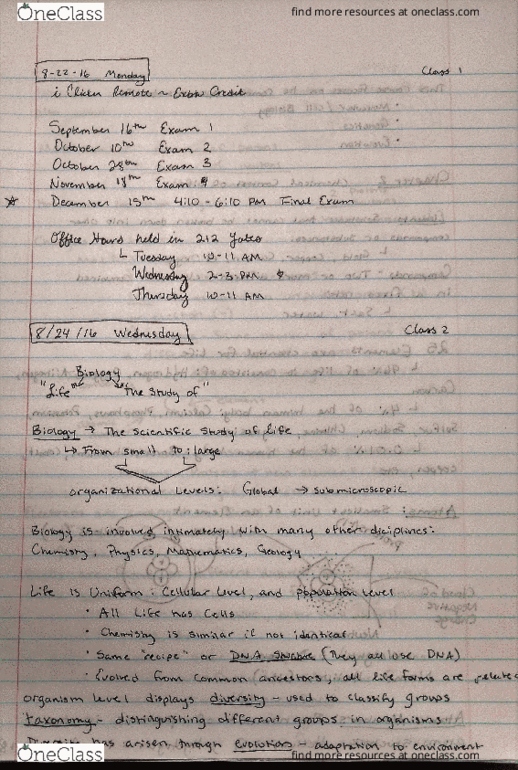 OneClass
find more resources at oneclass.com
8-22-16 Monday
Class 1
i Clicker Remote ~ Extra Credit
September 16th Exam 1
October 10th Exam 2
October 28th Exam 3
November 18th Exam 4
* December 15th 4:10 - 6:10 PM Final Exam
Office Hours held in 212 Yates
↳ Tuesday 10-11 AM
Wednesday 2-3 PM
Thursday 10-11 AM
8/24/16 Wednesday
Class 2
Biology
"Life" "The study of"
Biology → The scientific study of life
↳ From small to large
organizational levels: Global → submicroscopic
Biology is involved intimately with many other diciplines:
Chemistry, Physics, Mathematics, Geology
Life is Uniform: Cellular level, and population level
• All Life has Cells
• Chemistry is similar if not identical
• Same "recipe" or DNA (They all use DNA)
• Evolved from common ancestors, all life forms are related
organism level displays diversity - used to classify groups
taxonomy - distinguishing different groups in organisms
Diversity has arisen through evolution - adaptation to environment
OneClass
find more resources at oneclass.com